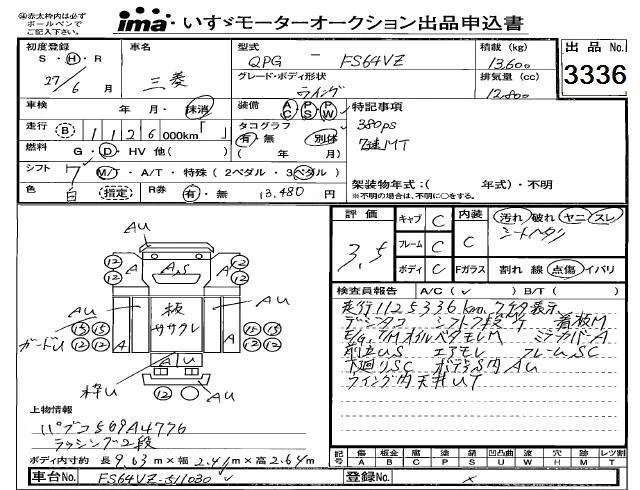 ㊟赤太枠内は必ず
ボールペンで
ご記入下さい。
ima いすゞモーターオークション出品申込書
初度登録 車名 型式 積載 (kg) 出品 No.
S・H・R 27/6 月 三菱 QPG - FS64VZ 13,600
グレード・ボディ形状 排気量 (cc)
ウイング 12,800
3336
車検 年 月・抹消 装備 AC PS PW 特記事項
走行 B 1 1 2 6 000km「 」 タコグラフ 380ps
有・無 別体 7速MT
燃料 G・D・HV 他( ) ( 年 月)
シフト 7 M/T・A/T・特殊 (2ペダル・3ペダル) 架装物年式:( 年式)・不明
色 白 (指定) R券 有・無 13,480 円 ※不明の場合は、不明に○をする。
評価 キャブ C 内装 汚れ 破れ ヤニ スレ
3.5 フレーム C C シートヘタリ
ボディ C Fガラス 割れ 線 点傷 イバリ
AU
12 A A A 12
12 A,S 12
AU 板 AU
ササクレ
15 15 15 15
ガードU 12 12 A A 12 12
A U
枠U 12 AU
検査員報告 A/C( ✓ ) B/T( )
走行1125336km メータ表示
デジタコ シフトノブ 看板M
E/G,T/MオイルベタモレM ミラカバーA
前立US エアモレ フレームSC
下廻りSC ボデーS内AU
ウイング内天井UT
上物情報
パブコ569A4776
ラッシング2段
ボディ内寸約 長9.63m×幅2.41m×高2.64m
記号 傷 板金 腐 塗 錆 凹凸曲 波 穴 跡 レツ割
A B C P S U W H M T
車台No. FS64VZ-511030 登録No. ×